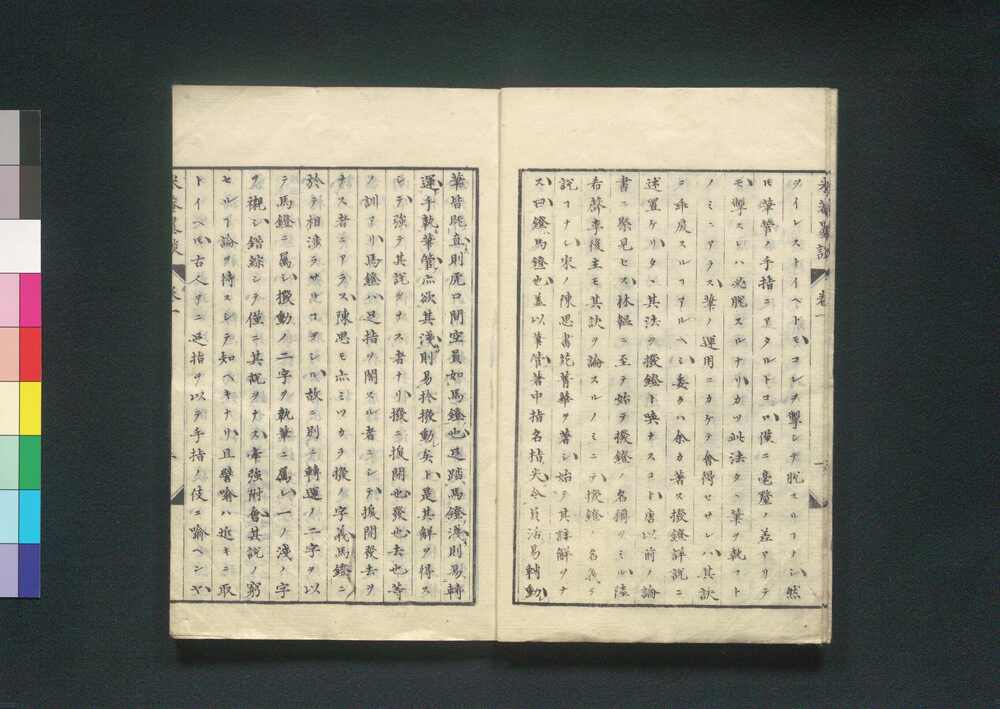 米菴墨談 巻一
ヲイレストイヘトモコレヲ撃シテ脱スルコナシ然
ルモ筆管ノ手指ニアタルトコロ僅ニ毫釐ノ差アリテ
モ撃スレハ必脱スルナリカツ此法タヽ筆ヲ執コト
ノミニアラス筆ノ運用ニカケテ會得セサレハ其訣
ニ乖戻スルコアルヘシ委クハ余カ著ス撥鐙詳説ニ
述置ケリタヽ其法ヲ撥鐙ト喚ナスコト唐以前ノ論
書ニ聚見ヒス林韞ニ至テ始テ撥鐙ノ名稱ヲミル陸
希聲李後主モ其訣ヲ論スルノミニテ撥鐙ノ名義ヲ
説コナシ宋ノ陳思書苑菁華ヲ著シ始テ其註解ヲナ
ス曰鐙馬鐙也蓋以筆管著中指名指尖令員活易轉動
筆皆既直則虎口間空員如馬鐙也足踏馬鐙淺則易轉
運手執筆管亦欲其淺則易於撥動矣ト是其解ヲ得ス
シテ強テ其説ヲナス者ナリ撥ニ挨開也發也去也等
ノ訓アリ馬鐙ハ足指ヲ閣スル者ニシテ挨開發去ヲ
ナス者ニアラス陳思モ亦ミツカラ撥ノ字義馬鐙ニ
於テ相渉ラサルコヲシル故ニ別テ轉運ノ二字ヲ以
テ馬鐙ニ屬シ撥動ノ二字ヲ執筆ニ屬シ一ノ淺ノ字
ヲ襯シ錯綜シテ僅ニ其説ヲナス牽強附會其説ノ窮
セル論ヲ待スシテ知ヘキナリ且譬喩ハ近キニ取
トイヘル古人ナニ足指ヲ以テ手指ノ伎ニ喩ヘンヤ
米菴墨談 巻一